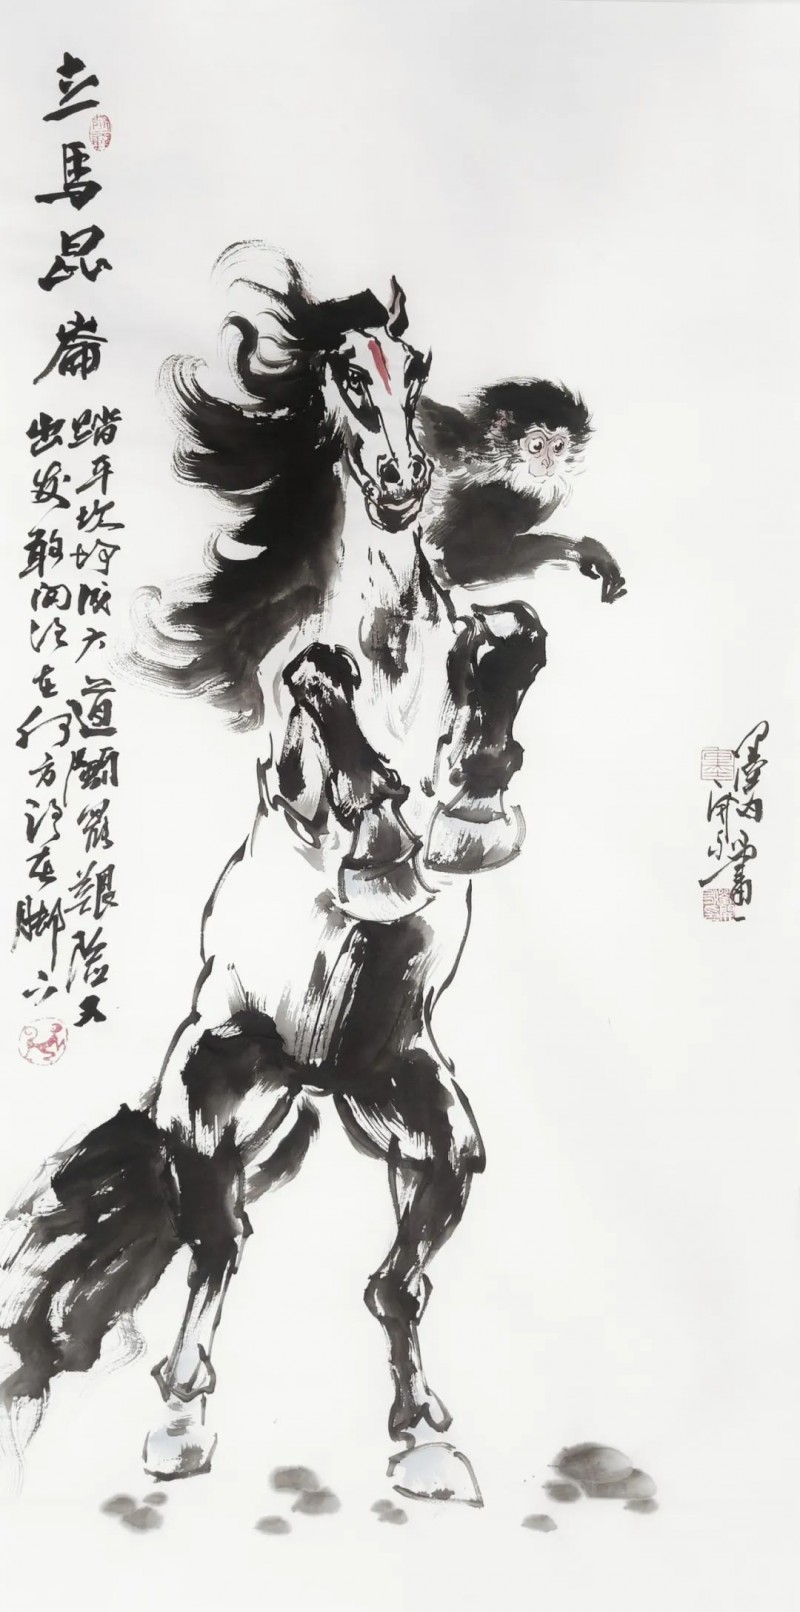 立馬昆崙
踏平坎坷成大道鬭罢艰险又
出发敢问路在何方路在脚下